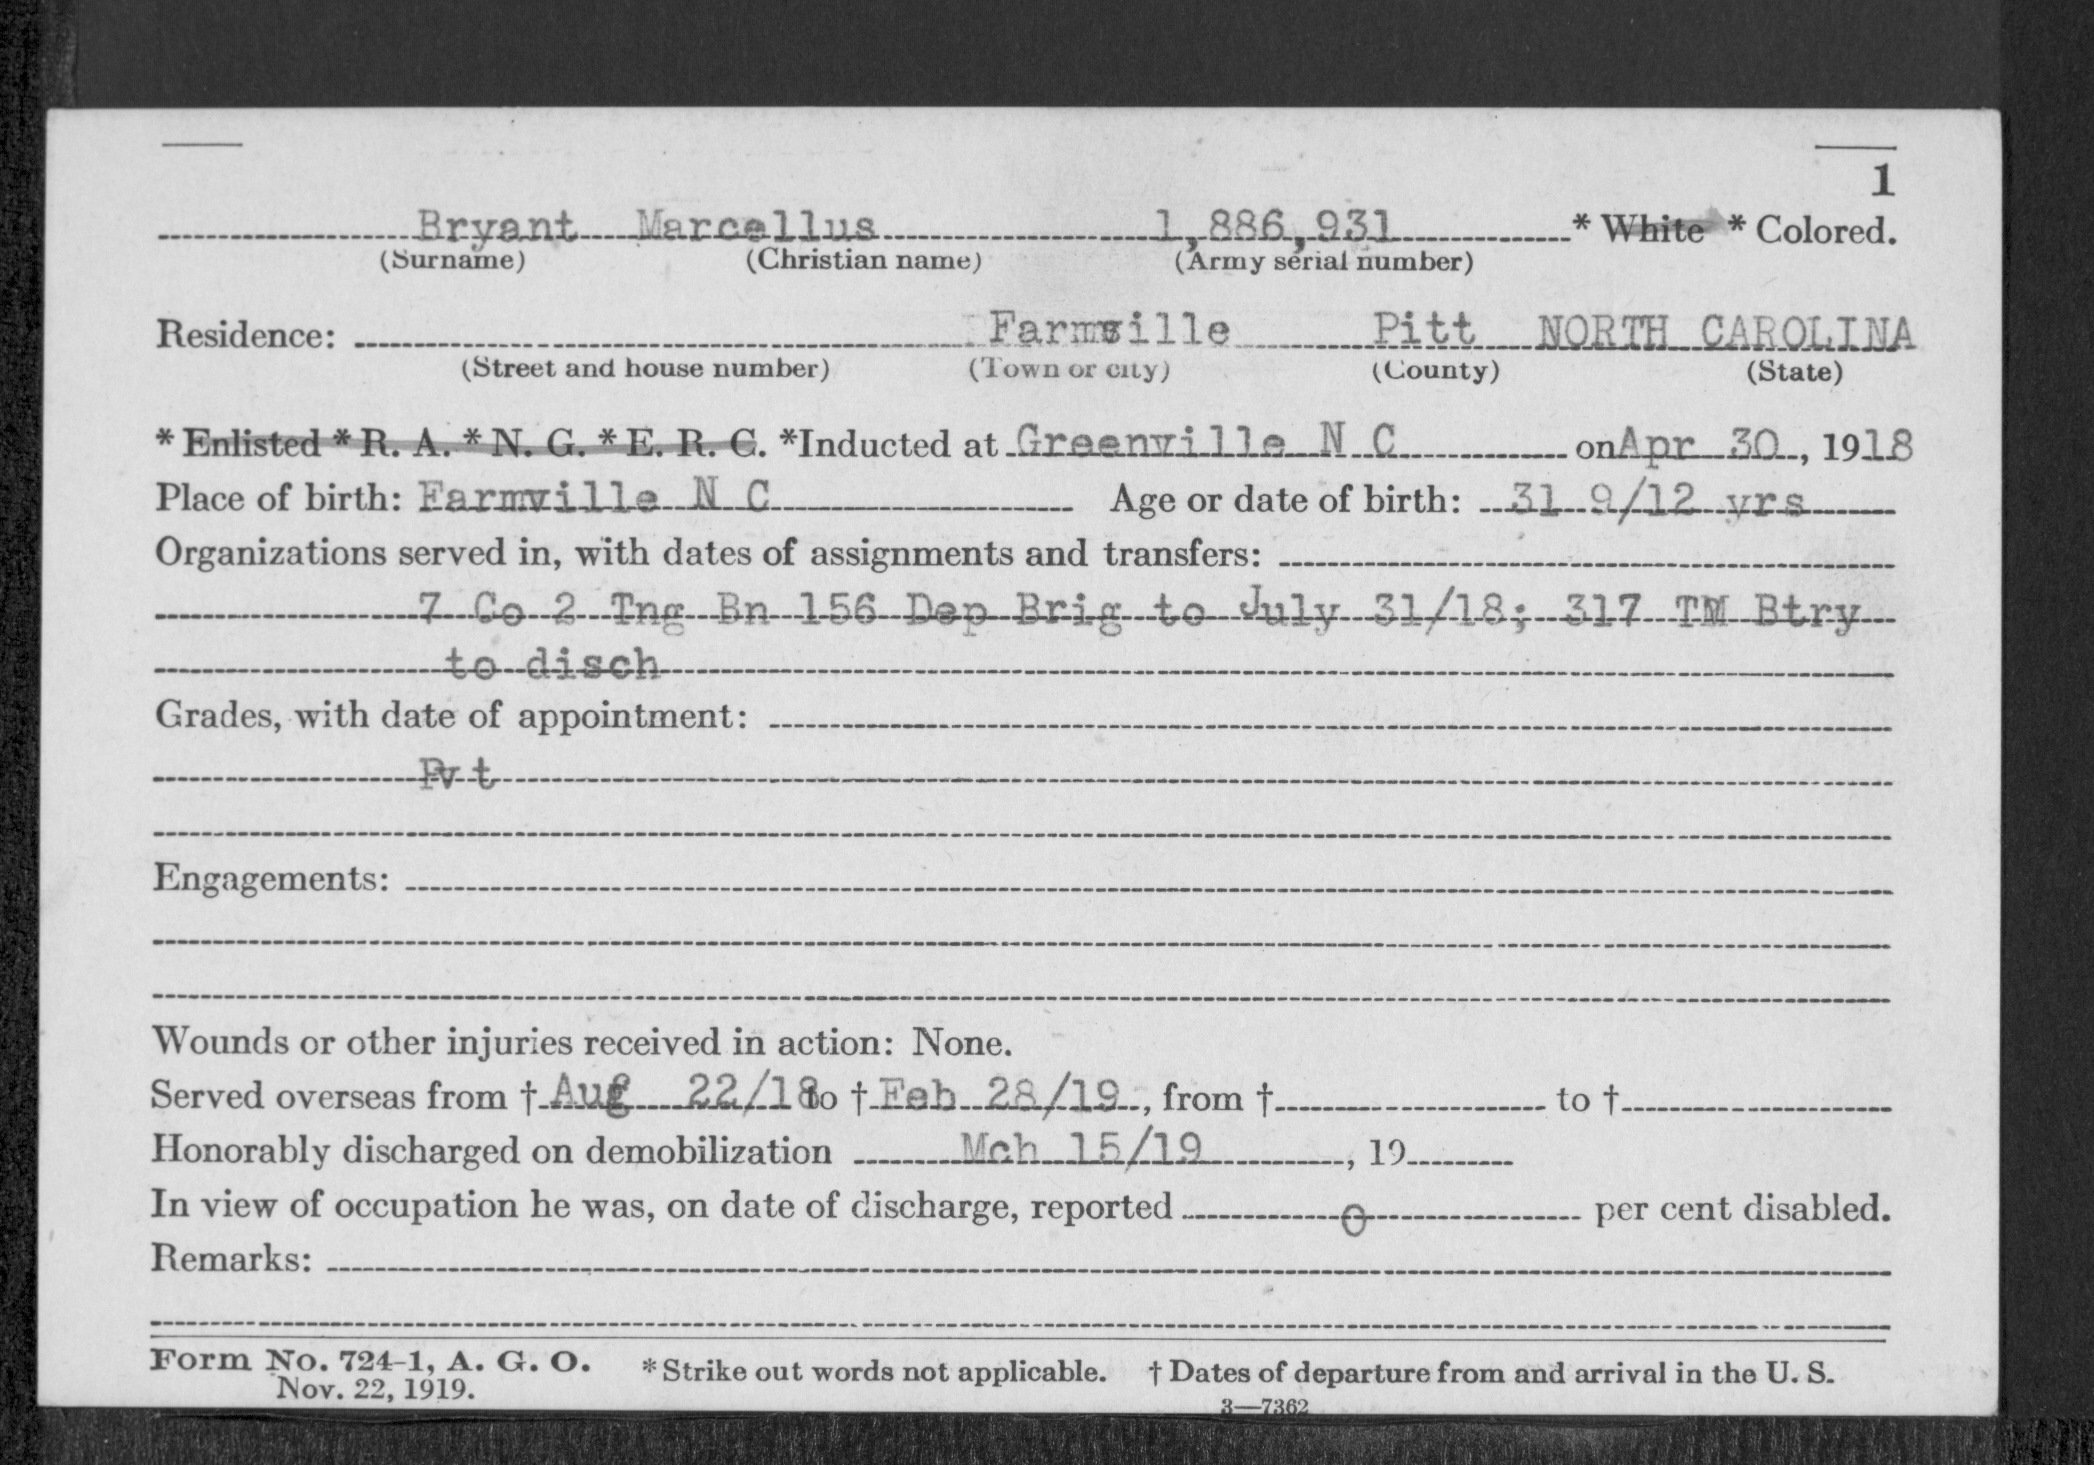 1
Bryant Marcellus 1,886,931 * White * Colored.
(Surname) (Christian name) (Army serial number)
Residence: Farmville Pitt NORTH CAROLINA
(Street and house number) (Town or city) (County) (State)
* Enlisted * R. A. * N. G. * E. R. C. *Inducted at Greenville N C on Apr 30, 1918
Place of birth: Farmville N C Age or date of birth: 31 9/12 yrs
Organizations served in, with dates of assignments and transfers:
7 Co 2 Tng Bn 156 Dep Brig to July 31/18; 317 TM Btry
to disch
Grades, with date of appointment:
Pvt
Engagements:
Wounds or other injuries received in action: None.
Served overseas from † Aug 22/18 to † Feb 28/19, from † to †
Honorably discharged on demobilization Mch 15/19, 19
In view of occupation he was, on date of discharge, reported 0 per cent disabled.
Remarks:
Form No. 724-1, A. G. O. * Strike out words not applicable. † Dates of departure from and arrival in the U. S.
Nov. 22, 1919.
3—7362